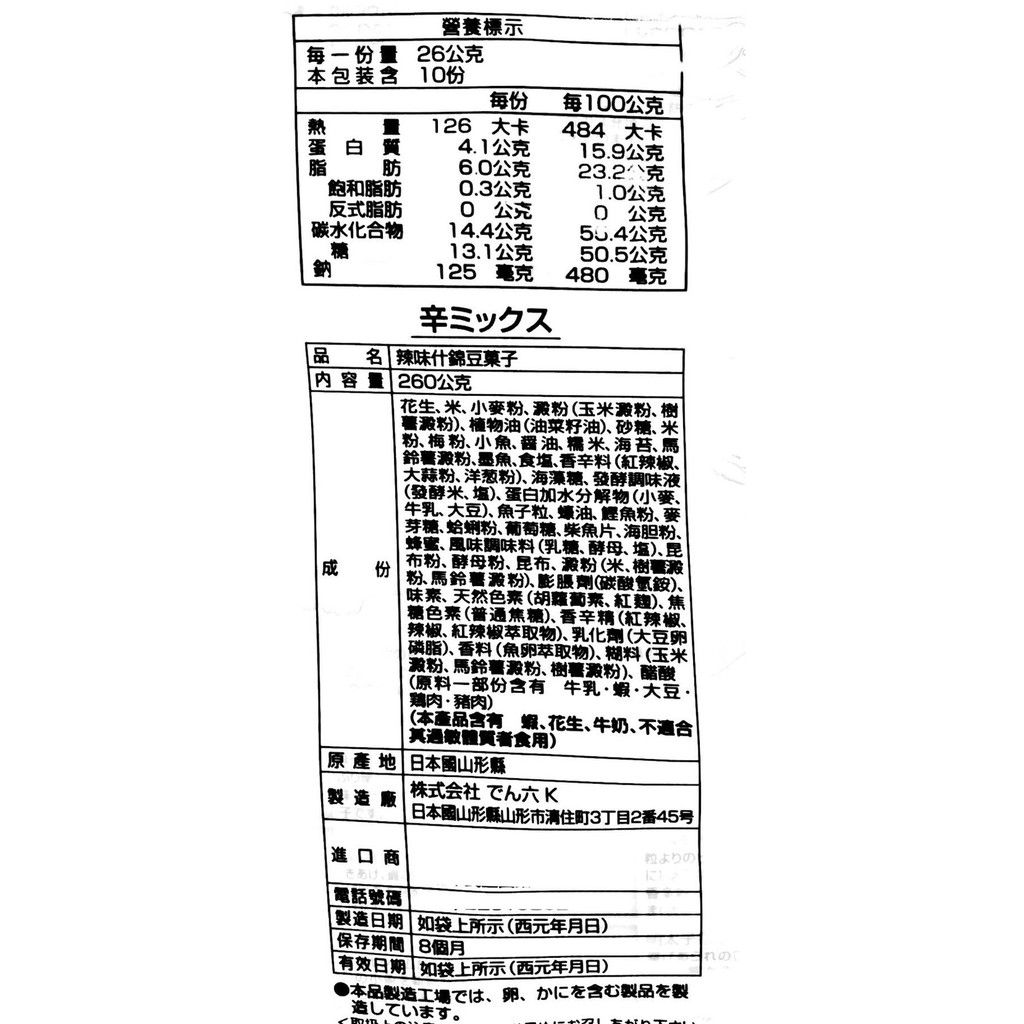 營養標示
每一份量 26公克
本包裝含 10份
每份 每100公克
熱量 126 大卡 484 大卡
蛋白質 4.1公克 15.9公克
脂肪 6.0公克 23.2公克
飽和脂肪 0.3公克 1.0公克
反式脂肪 0 公克 0 公克
碳水化合物 14.4公克 公克
糖 13.1公克 50.5公克
鈉 125 毫克 480 毫克
辛ミックス
品名 辣味什錦豆菓子
內容量 260公克
成份
花生、米、小麥粉、澱粉(玉米澱粉、樹
薯澱粉)、植物油(油菜籽油)、砂糖、米
粉、梅粉、小魚、醬油、糯米、海苔、馬
鈴薯澱粉、墨魚、食塩、香辛料(紅辣椒、
大蒜粉、洋葱粉)、海藻糖、發酵調味液
(發酵米、塩)、蛋白加水分解物(小麥、
牛乳、大豆)、魚子粒、蠔油、鰹魚粉、麥
芽糖、蛤蜊粉、葡萄糖、柴魚片、海胆粉、
蜂蜜、風味調味料(乳糖、酵母、塩)、昆
布粉、酵母粉、昆布、澱粉(米、樹薯澱
粉、馬鈴薯澱粉)、膨脹劑(碳酸氫銨)、
味素、天然色素(胡蘿蔔素、紅麴)、焦
糖色素(普通焦糖)、香辛精(紅辣椒、
辣椒、紅辣椒萃取物)、乳化劑(大豆卵
磷脂)、香料(魚卵萃取物)、糊料(玉米
澱粉、馬鈴薯澱粉、樹薯澱粉)、醋酸
(原料一部份含有 牛乳・蝦・大豆・
鶏肉・豬肉)
(本產品含有 蝦、花生、牛奶、不適合
其過敏體質者食用)
原產地 日本國山形縣
製造廠 株式会社 でん六 K
日本國山形縣山形市清住町3丁目2番45号
進口商
電話號碼
製造日期 如袋上所示(西元年月日)
保存期間 8個月
有效日期 如袋上所示(西元年月日)
●本品製造工場では、卵、かにを含む製品を製
造しています。